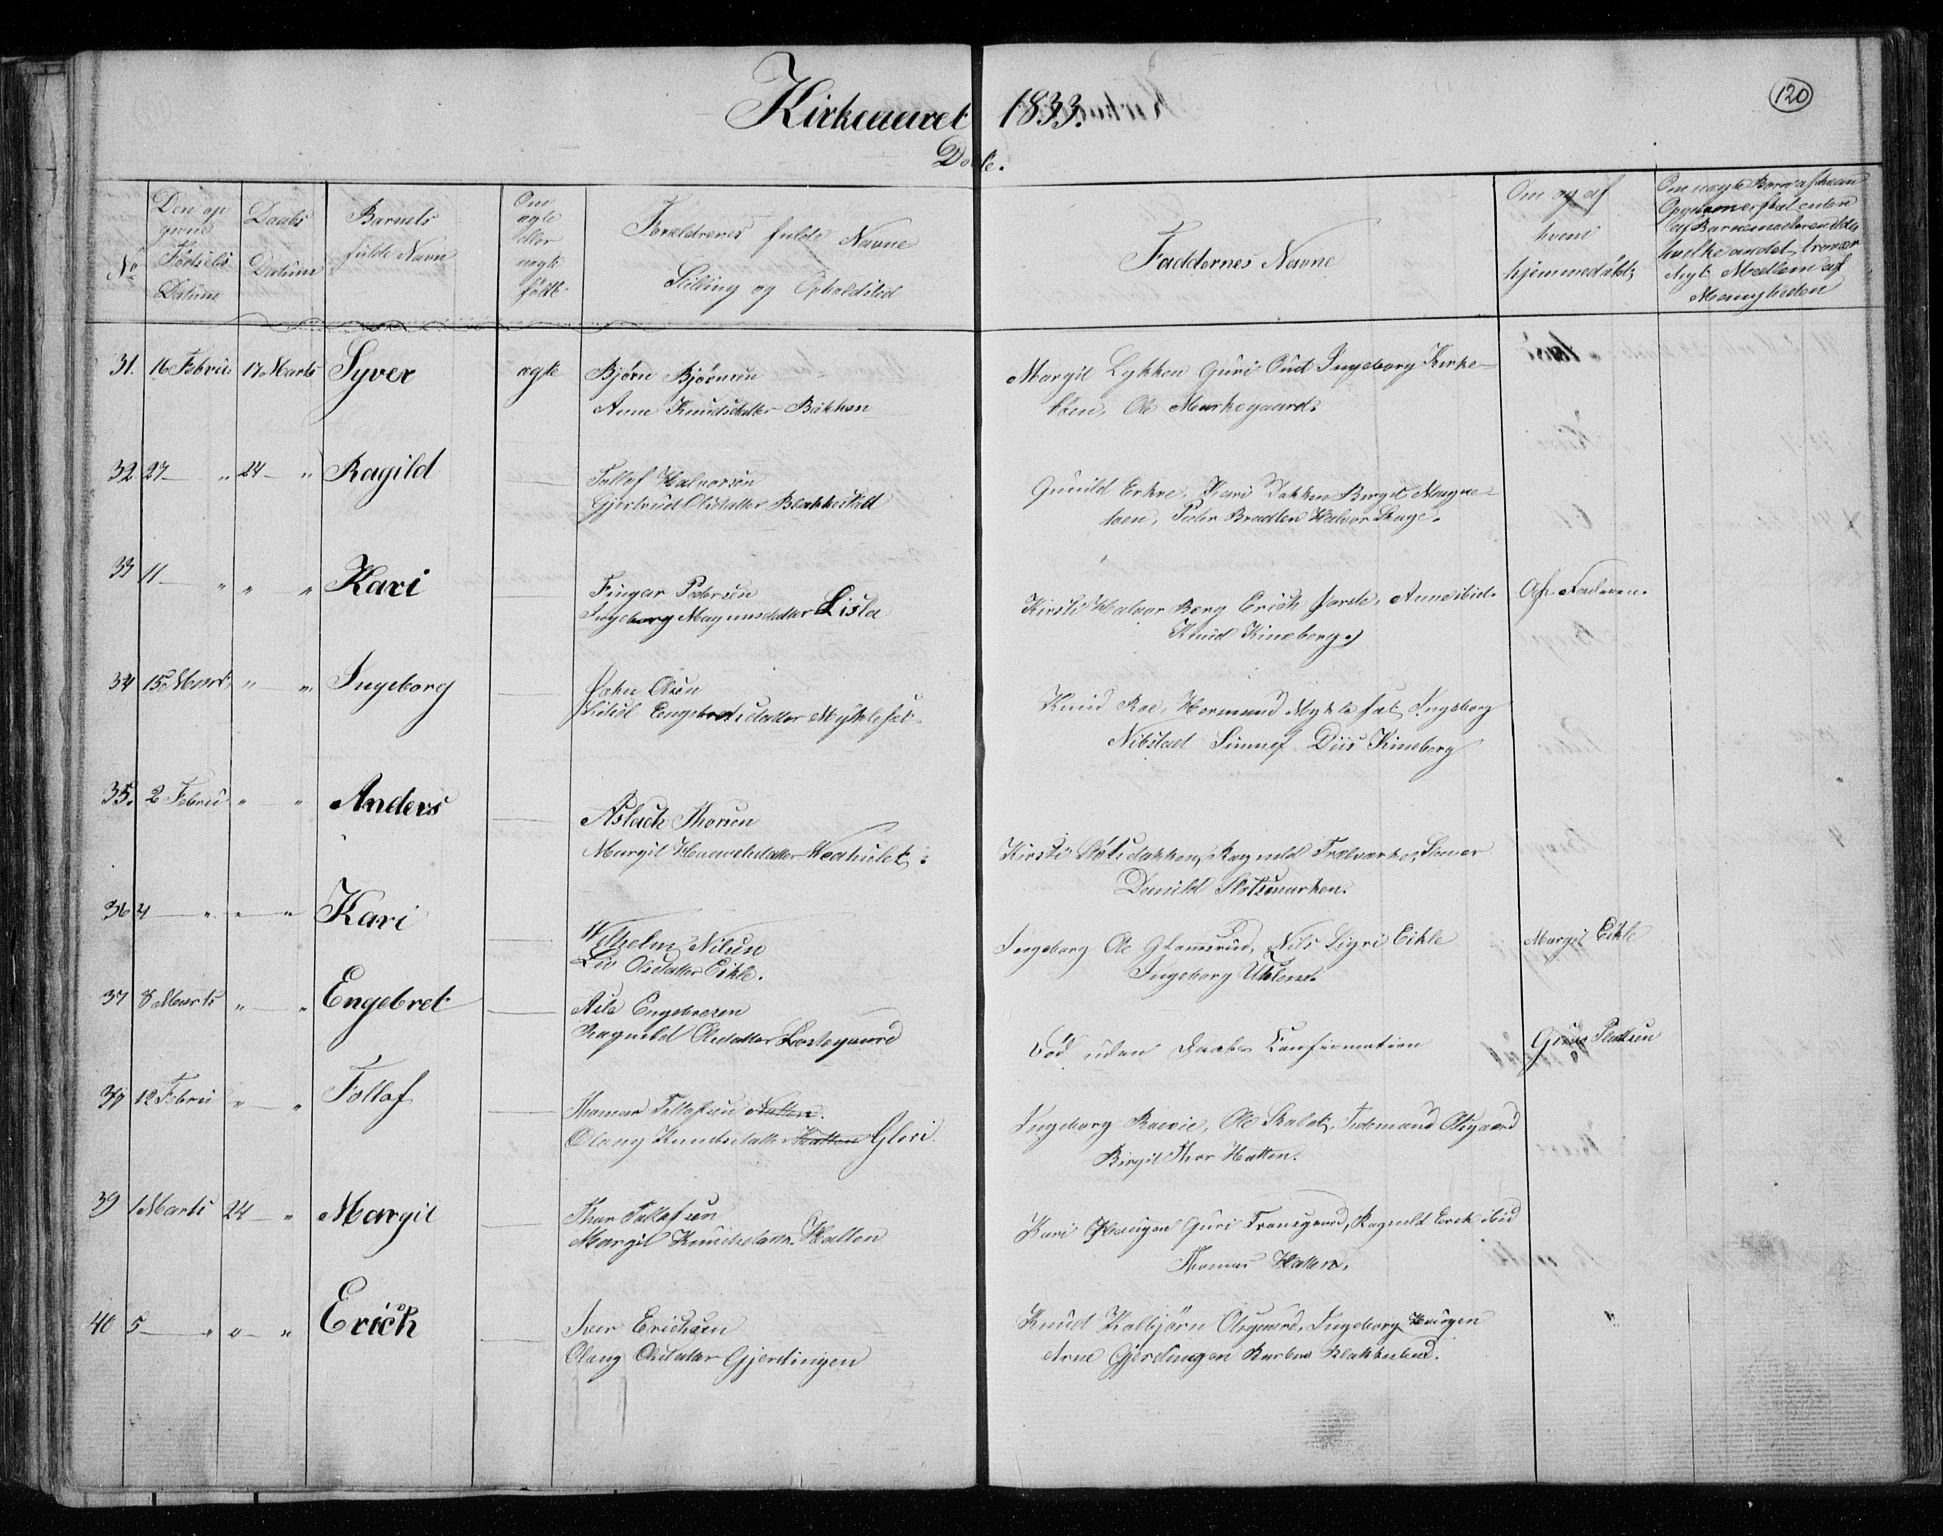 Kirkeaaret 1833.
120
Døbte.
No
Den op
givne
Fødsels
Datum
Daabs
Datum
Barnets
fulde Navn
Om
ægte
eller
uægte
født.
Forældrenes fulde Navne
Stilling og Opholdsted
Faddernes Navne
Om og af
hvem
hjemmedøbt
Om uægte Børn af hvem
Meenigheden
31. 16 Febru 17 Marts Syver ægte Bjørn Bjørnsen
Anne Knudsdatter Bakken
Margit Lykken Guri Ourd Ingeborg Kirke-
Ole Markegaard.
32 27 — " 24 — " Ragild — Tollof Halvorsen
Gjertrud Olsdatter Blakkestad
Gunild Erkre, Kari Bakken Birgit Magne-
toen, Peder Bradlen Halvor Skage.
33 11 — " " " Kari — Fingar Pedersen
Ingeborg Magnusdatter Lisla
Kirsti Halvor Berg Erich Jorde, Anne ibid.
Knud Kineberg.
Af Faderen.
34 15 Marts " — " Ingeborg — John Olsen
Engebretsdatter Myklesat
Knud Roe, Hermand Myklesat Ingeborg
Nibstad Sinnef Diis Kineberg
35. 2 Febru " — " Anders — Aslach Thorsen
Margit
Kirsti Ragnild
Slotsmarken.
36 4 — " " — " Kari — Wilhelm Nilsen
Liv Olsdatter Eikle.
Ingeborg Ole Glamsrud, Nils Sigri Eikle
Ingeborg
Margit Eikle
37 8 Marts " — " Engebret — Nils Engebresen
Ragnild Olsdatter Lostegaard
Død uden Daabs Confirmation
12 Febru " — " Tollof — Thomas Tollofsen Hatten.
Olaug Knudsdatter Hatten Gleri.
Ingeborg Ole Skalet, Tidemand Olsgaard
Birgit Thor Hatten.
39 1 Marts 24 — " Margit — Thor Tollofsen
Margit Knudsdatter Hatten
Kari Haugen Guri Transgaard, Ragnild Erik ibid
Thomas Hatten.
40 5 — " " — " Erich — Iver Erichsen
Olaug Olsdatter Gjerdingen
Knud Kolbjørn Olsgaard, Ingeborg Haugen
Arne Gjerdingen Barbro Blakkestad.
"